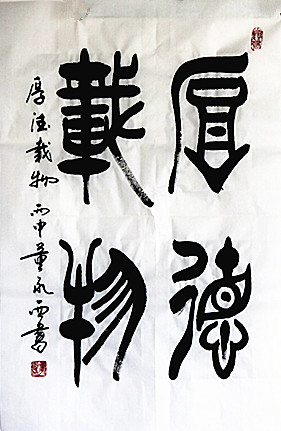 厚德
載物
厚德载物 丙申董永西書